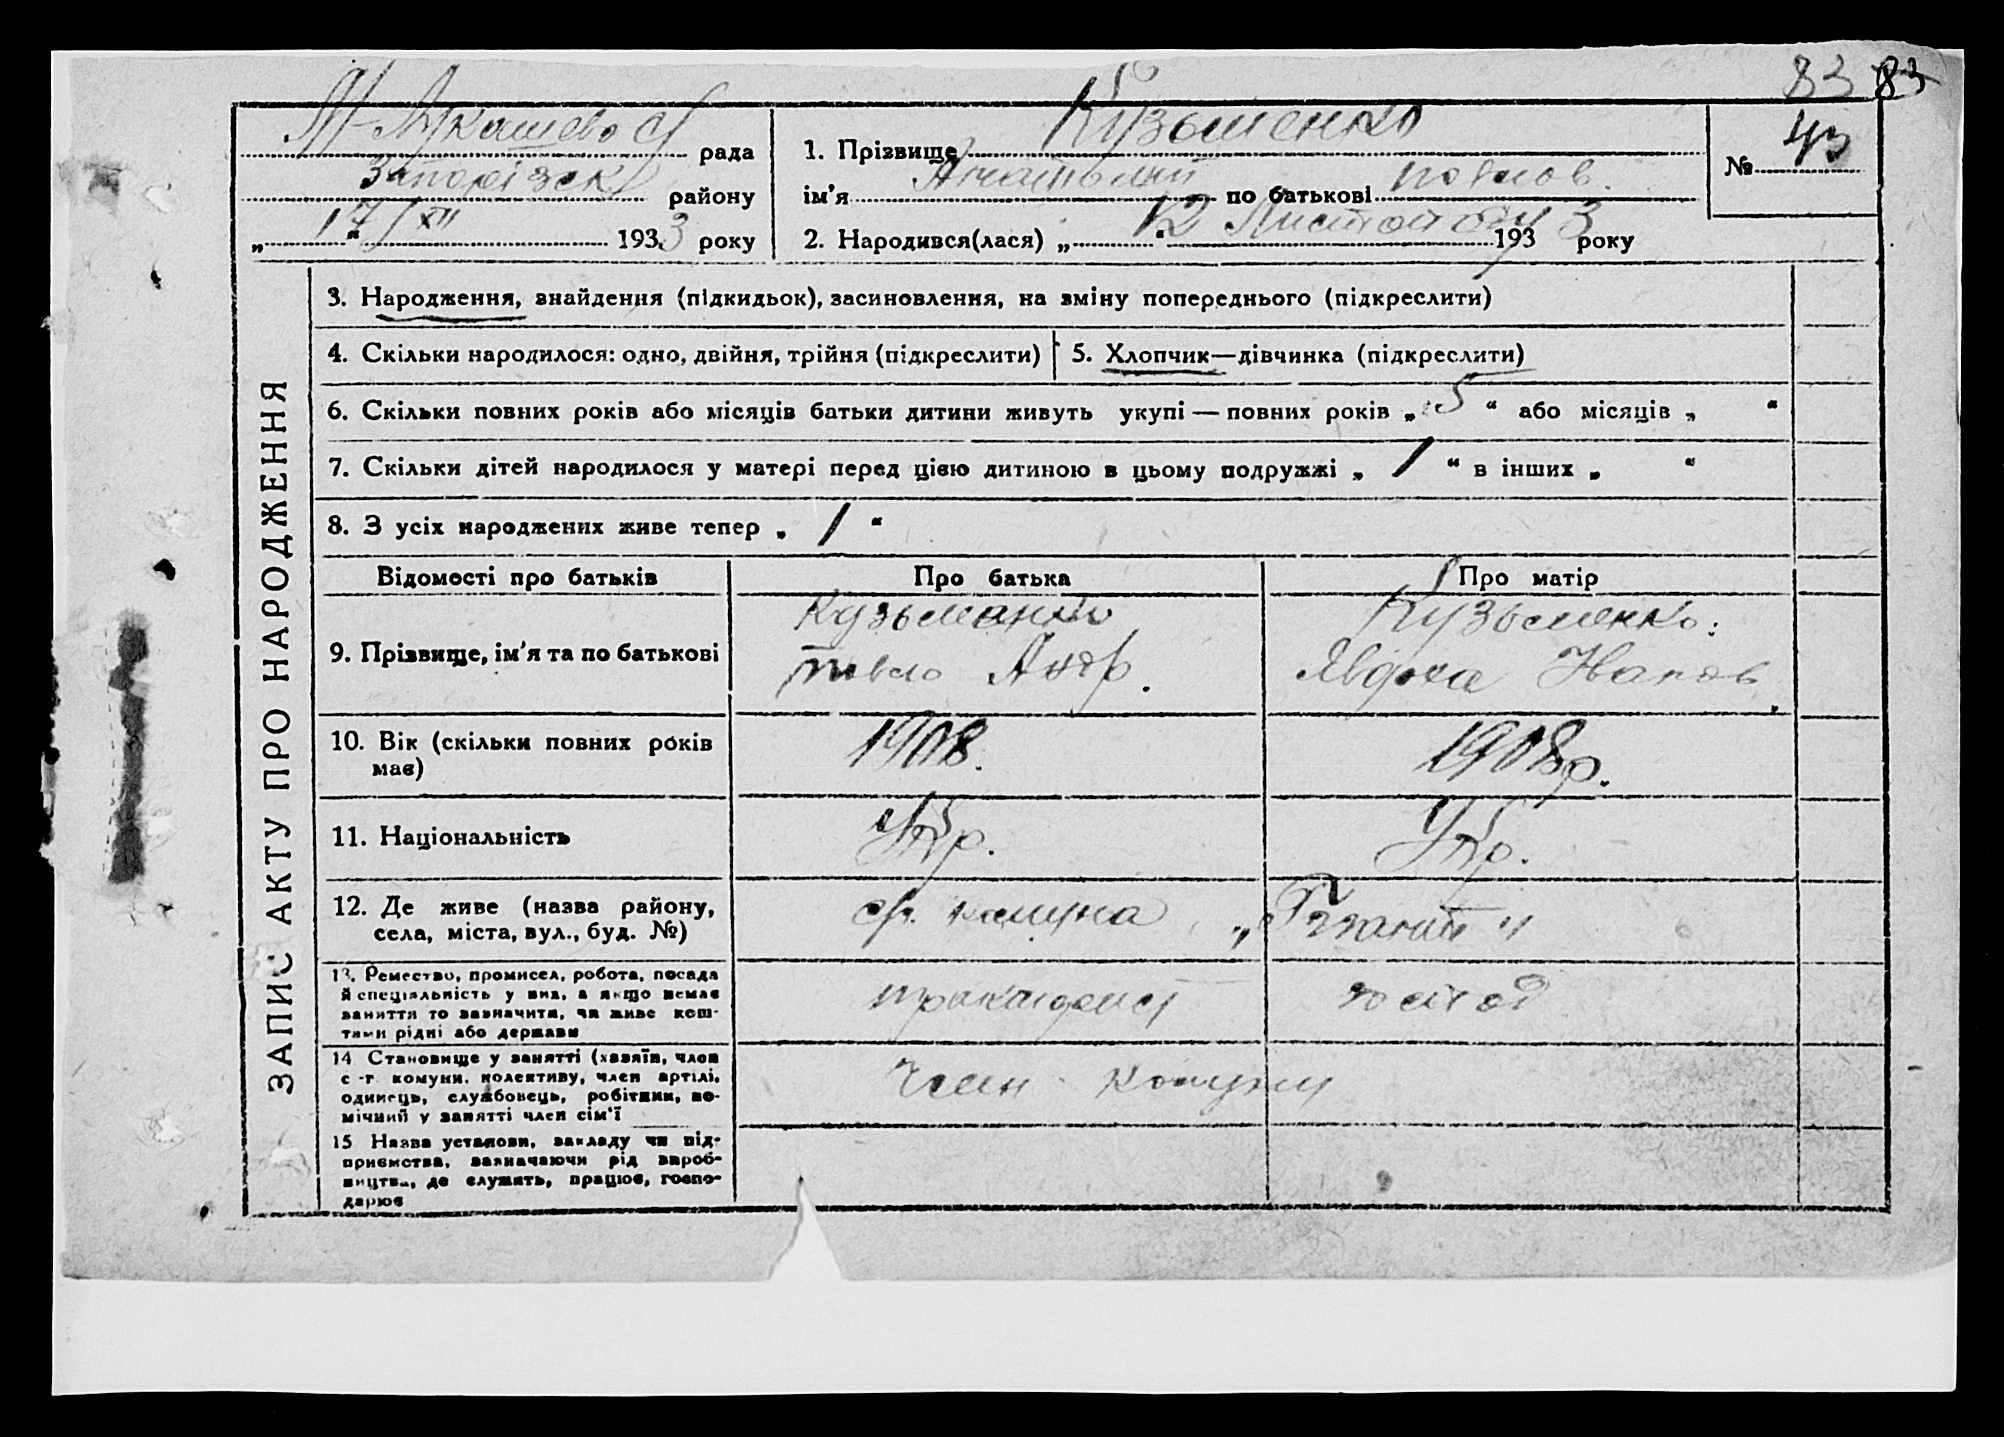 83 83
М-Лукашевос рада
Запорізск району
" 17/XII " 1933 3 року
1. Прізвище Кузьменко
ім'я Анатолий по батькові Повлов.
2. Народився(лася) „ 12 " Листоподу 193 3 року
№ 43
ЗАПИС АКТУ ПРО НАРОДЖЕННЯ
3. Народження, знайдення (підкидьок), засиновлення, на зміну попереднього (підкреслити)
4. Скільки народилося: одно, двійня, трійня (підкреслити) 5. Хлопчик—дівчинка (підкреслити)
6. Скільки повних років або місяців батьки дитини живуть укупі — повних років „ 5 " або місяців „ "
7. Скільки дітей народилося у матері перед цією дитиною в цьому подружжі „ 1 " в інших „ "
8. З усіх народжених живе тепер „ 1 "
Відомості про батьків Про батька Про матір
9. Прізвище, ім'я та по батькові
Кузьманко
Повло Андр.
Кузьменко.
Явдоха
10. Вік (скільки повних років
має)
1908.
1908р.
11. Національність
Укр.
Укр.
12. Де живе (назва району,
села, міста, вул., буд. №)
комуна „Гігант"
13. Ремество, промисел, робота, посада
й спеціяльність у них, а якщо немає
заняття то зазначити, чи живе кош-
тами рідні або держави
тракторист
14 Становище у занятті (хазяїн, член
с.-г. комуни, колективу, член артілі,
одинець, службовець, робітник, по-
мічний у занятті член сім'ї
член комуни
15 Назва установи, закладу чи під-
приємства, зазначаючи рід вироб-
ництва, де служить, працює, госпо-
дарює